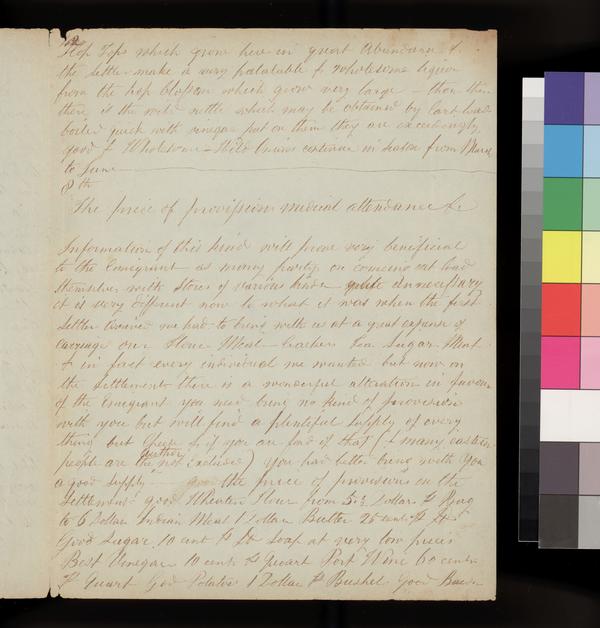 Hop Tops which grow here in great abundance &
the settlers make a very palatable & wholesome liquor
from the hop blossom which grow very large — then
there is the wild nettle which may be obtained by cart load
boiled quick with vinegar put on them they are exceedingly
good & Wholesome — Wild Onions continue in season from March
to June
8th
The price of provission medical attendance &c
Information of this kind will prove very beneficial
to the Emigrant as many partys on comeing out load
themselves with stores of various kinds quite unnecessary
it is very different now to what it was when the first
settler arrived we had to bring with us at a great expense of
carriage our Flour Meal Crackers Tea Sugar Meat
& in fact every individual we wanted but now on
the settlement there is a wonderful alteration in favour
of the Emigrant you need bring no kind of provision
with you but will find a plentiful supply of every
thing but Cheese & if you are fond of that (& many eastern
people are further the not excluded) you had better bring with you
a good supply — the price of provisions on the
Settlement good Wheaten Flour from 5½ Dollar P Bag
to 6 Dollar Indian Meal 1 Dollar Butter 25 cents P lb
Good Sugar 10 cent P lb Soap at very low price
Best Vinegar 10 cents P Quart Port Wine 60 cents
P Quart Good Potatoe 1 Dollar P Bushel Good Bacon